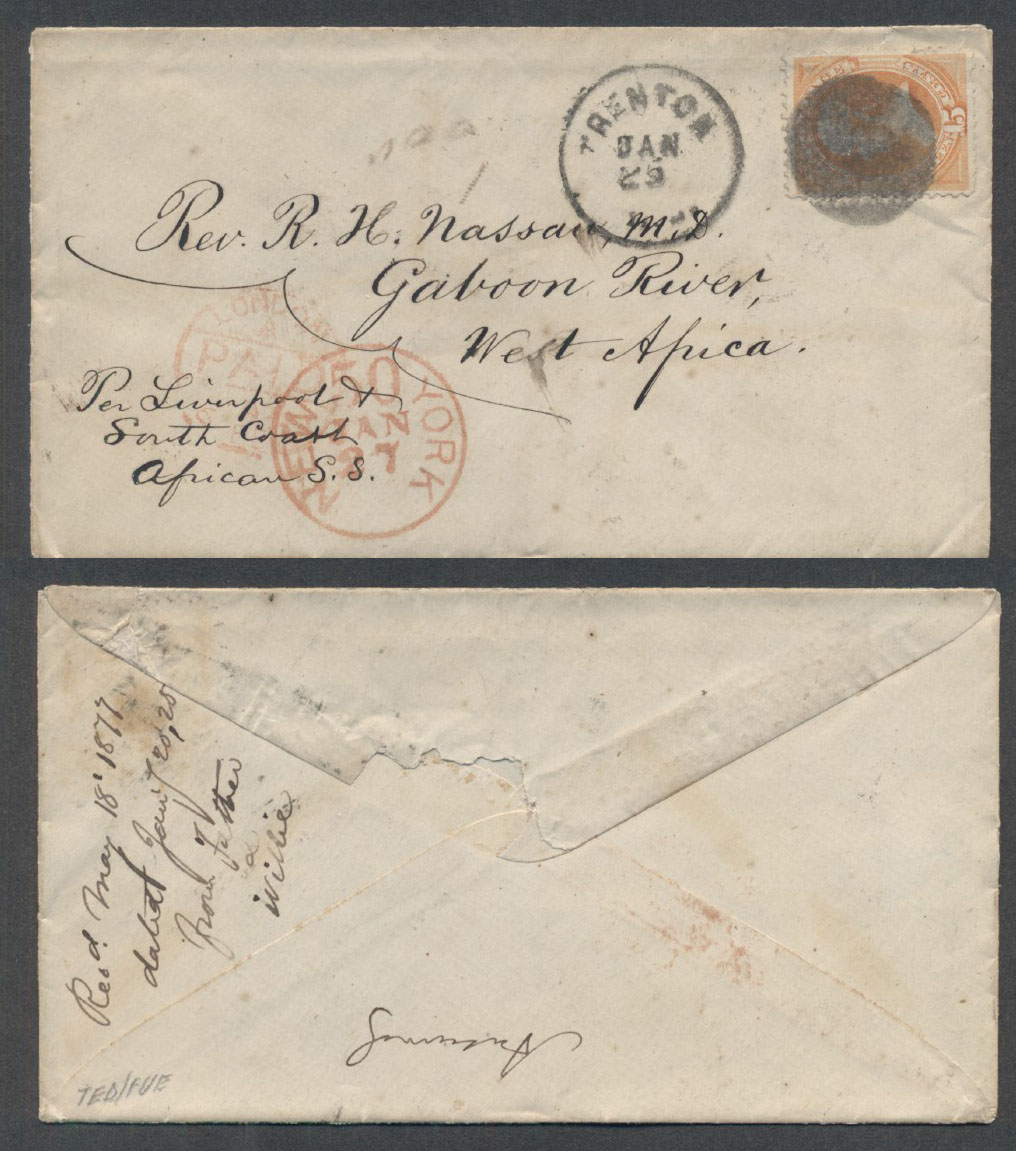 TRENTON
JAN
25
Rev. R. H. Nassau, M.D.
Gaboon River,
West Africa.
LONDON
PAI
Per Liverpool &
South Coast
African S.S.
NEW YORK
50
JAN
27
Rec'd. May 18' 1877
dated Jan'y 20, 25
from Father
Willie
TED/FUE